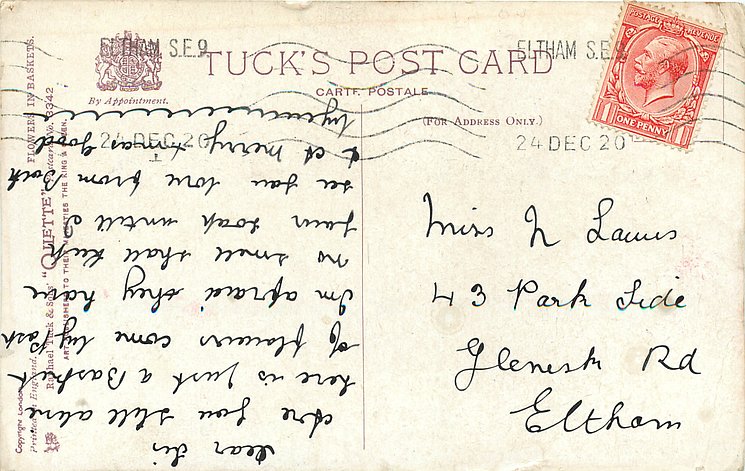 ELTHAM S.E.9
24 DEC 20
ELTHAM S.E.9
24 DEC 20
TUCK'S POST CARD
CARTE POSTALE
By Appointment.
(FOR ADDRESS ONLY.)
POSTAGE REVENUE
1 ONE PENNY 1
Dear Sis
Are you still alive
here is just a Baskeet
of flowers come by Post
Im afraid they have
no smell shall
your soak untill I
see you love from Both
& A merry Xmas Good
bye
Miss N
43 Park Side
Glenesk Rd
Eltham
FLOWERS IN BASKETS.
Raphael Tuck & Sons' "OILETTE" Postcard No. 3942
ART PUBLISHERS TO THEIR MAJESTIES THE KING & QUEEN.
Copyright London
Printed in England.